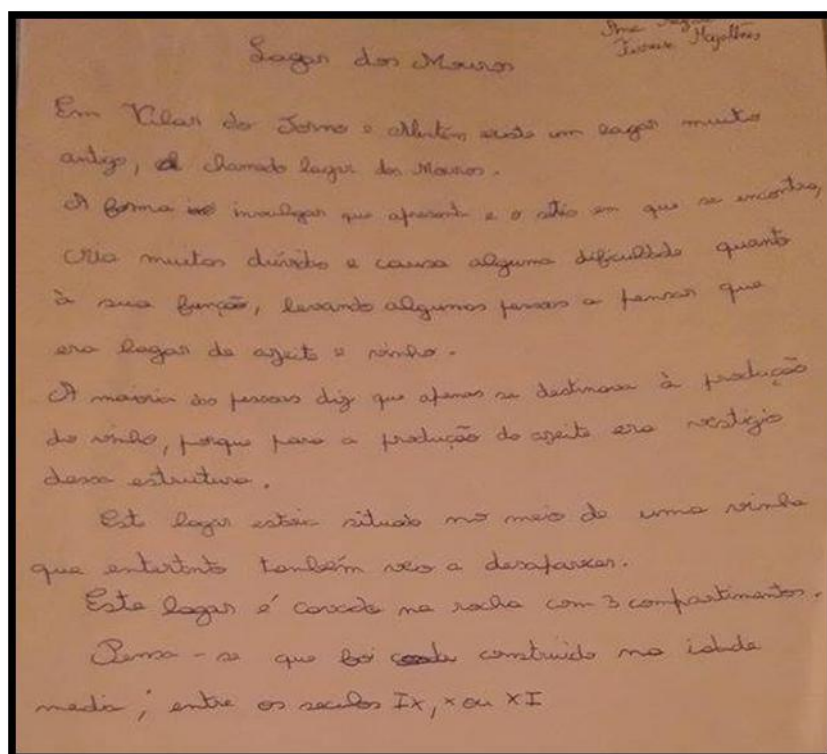 Ferreira Magalhães
Lagar dos Mouros
Em Vilar do Torno e Alentém existe um lagar muito
antigo, chamado lagar dos Mouros.
A forma invulgar que apresenta e o sitio em que se encontra,
cria muitas dúvidas e causa alguma dificuldade quanto
à sua função, levando algumas pessoas a pensar que
era lagar de azeite e vinho.
A maioria das pessoas diz que apenas se destinava à produção
do vinho, porque para a produção do azeite era vestígio
dessa estrutura.
Este lagar estava situado no meio de uma vinha
que entertanto também veio a desaparecer.
Este lagar é cavado na rocha com 3 compartimentos.
Pensa-se que foi construido na idade
media, entre os seculos IX, X ou XI